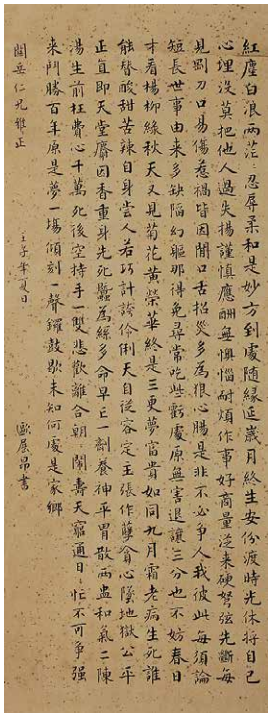 紅塵白浪兩茫〻忍辱柔和是妙方到處隨緣延歲月終生安份渡時光休將自己
心埋沒莫把他人過失揚謹慎應酬無懊惱耐煩作事好商量從来硬弩弦先斷每
見剛刀口易傷惹禍皆因閒口舌招災多為狠心腸是非不必爭人我彼此每須論
短長世事由来多缺陷幻軀那得免尋常吃些虧處原無害退讓三分也不妨春日
才看楊柳綠秋天又見菊花黃榮華終是三更夢富貴如同九月霜老病生死誰
能替酸甜苦辣自身當人若巧計誇伶俐天自從容定主張作孽貪心墮地獄公平
正直即天堂麝因香重身先死蠶為絲多命早亡一劑養神平胃散兩盅和氣二陳
湯生前枉費心千萬死後空持手一雙悲歡離合朝〻鬧壽夭窮通日〻忙不可爭强
来鬥勝百年原是夢一場傾刻一聲鑼鼓歇未知何處是家鄉
壬子年夏日 歐展昂書
岳仁兄雅正